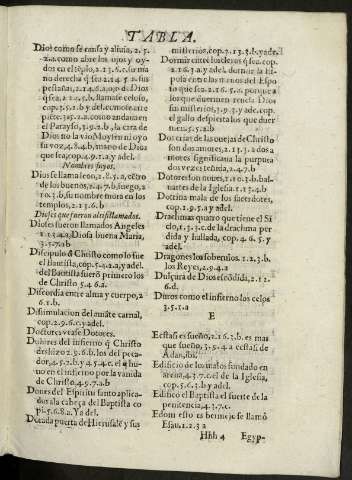 TABLA.
Dios como se causa y aliuia, 2.3.
2.a. como abre los ojos y oy-
dos en el téplo, 2.13.6. c. su ma
no derecha q sea 2.14.5.2. sus
pestañas, 2.14.5.a. ojo de Dios
q sea, 2.1 llamase celoso,
cop. 3.1.b. y del. como le arre
como andaua en
el Parayso, 3.9.2.b, la cara de
Dios no la vio Moysen ni oyo
su voz, 4.8.4.b, mano de Dios
que sea, cop. 4.9.1.a. y adel.
Nombres suyos.
Dios se llama leon, 2.8.5.a, cétro
de los buenos, 2.4.7.b, fuego, 2
10.3.b, su nombre mora en los
templos, 2.13.6.b
Dioses que fueron assi llamados.
Dioses fueron llamados Angeles
2.13.4.a, Diosa buena Maria,
3.5.7.a.b
Discipulo d Christo como lo fue
el Bautista, cop. 5.4.2.a, y adel.
del Baptista fueró primero los
de Christo 5.4.6.a.
Discordia entre alma y cuerpo, 2
6.1.b.
Dissimulacion del auiste carnal,
cop. 2.9.6.c. y adel.
Doctores vease Dotores.
Dolores del infierno q Christo
deshizo 2.9.6.b. los del peca-
dor, 4.5.7.b. y 4.5.4.c. el q hu-
uo en el infierno por la vanida
de Christo, 4.5.7.a.b
Dones del Espiritu santo aplica-
dos a la cabeça del Baptista co
pi. 5.6.8.a. Y adel.
Dorada puerta de Hierusalé y sus
misterios, cop. 2.13.3.b. y adel.
Dormir entre los cleros q sea. cop.
2.16.3.a. y adel. dormir la Es-
posa entre las manos del Espo
so que sea 2.16.5.a. porque a
los que duermen reuela Dios
sus misterios, 3.9.3.a. porque
el gallo despierta los que duer
men 5.5.2.b
Dos crias de las ouejas de Christo
son dos amores, 2.13.2.b. dos a
mores significaua la purpura
dos vezes teñida, 2.4.7.b
Dotores son nubes, 2.10.3.b. bal-
uartes de la Iglesia, 2.13.4.b
Dotrina mala de los sacerdotes,
cop. 2.4.5.a. y adel.
Drachmas quatro que tiene el Si
clo, 1.3.5.c. de la drachma per
dida y hallada, cop. 4.6.5. y
adel.
Dragones los soberuios. 1.2.3.b.
los Reyes, 2.9.4.a
Dulçura de Dios escódida, 2.12.
6.d.
Duros como el infierno los celos
3.5.1.a
E
Ecstasi es sueño, 2.16.3.b. es mas
que sueño, 3.9.4.a. ecstasi de
Adan, ibi.
Edificio de los malos fundado en
arena, 4.3.7.c. el de la Iglesia,
cop. 5.6.3.b. y adel.
Edifico el Baptista el fuerte de la
penitencia, 4.3.7.c.
Edom esto es bermejo se llamó
Esau. 1.2.3.a
Hhh 4
Egyp-